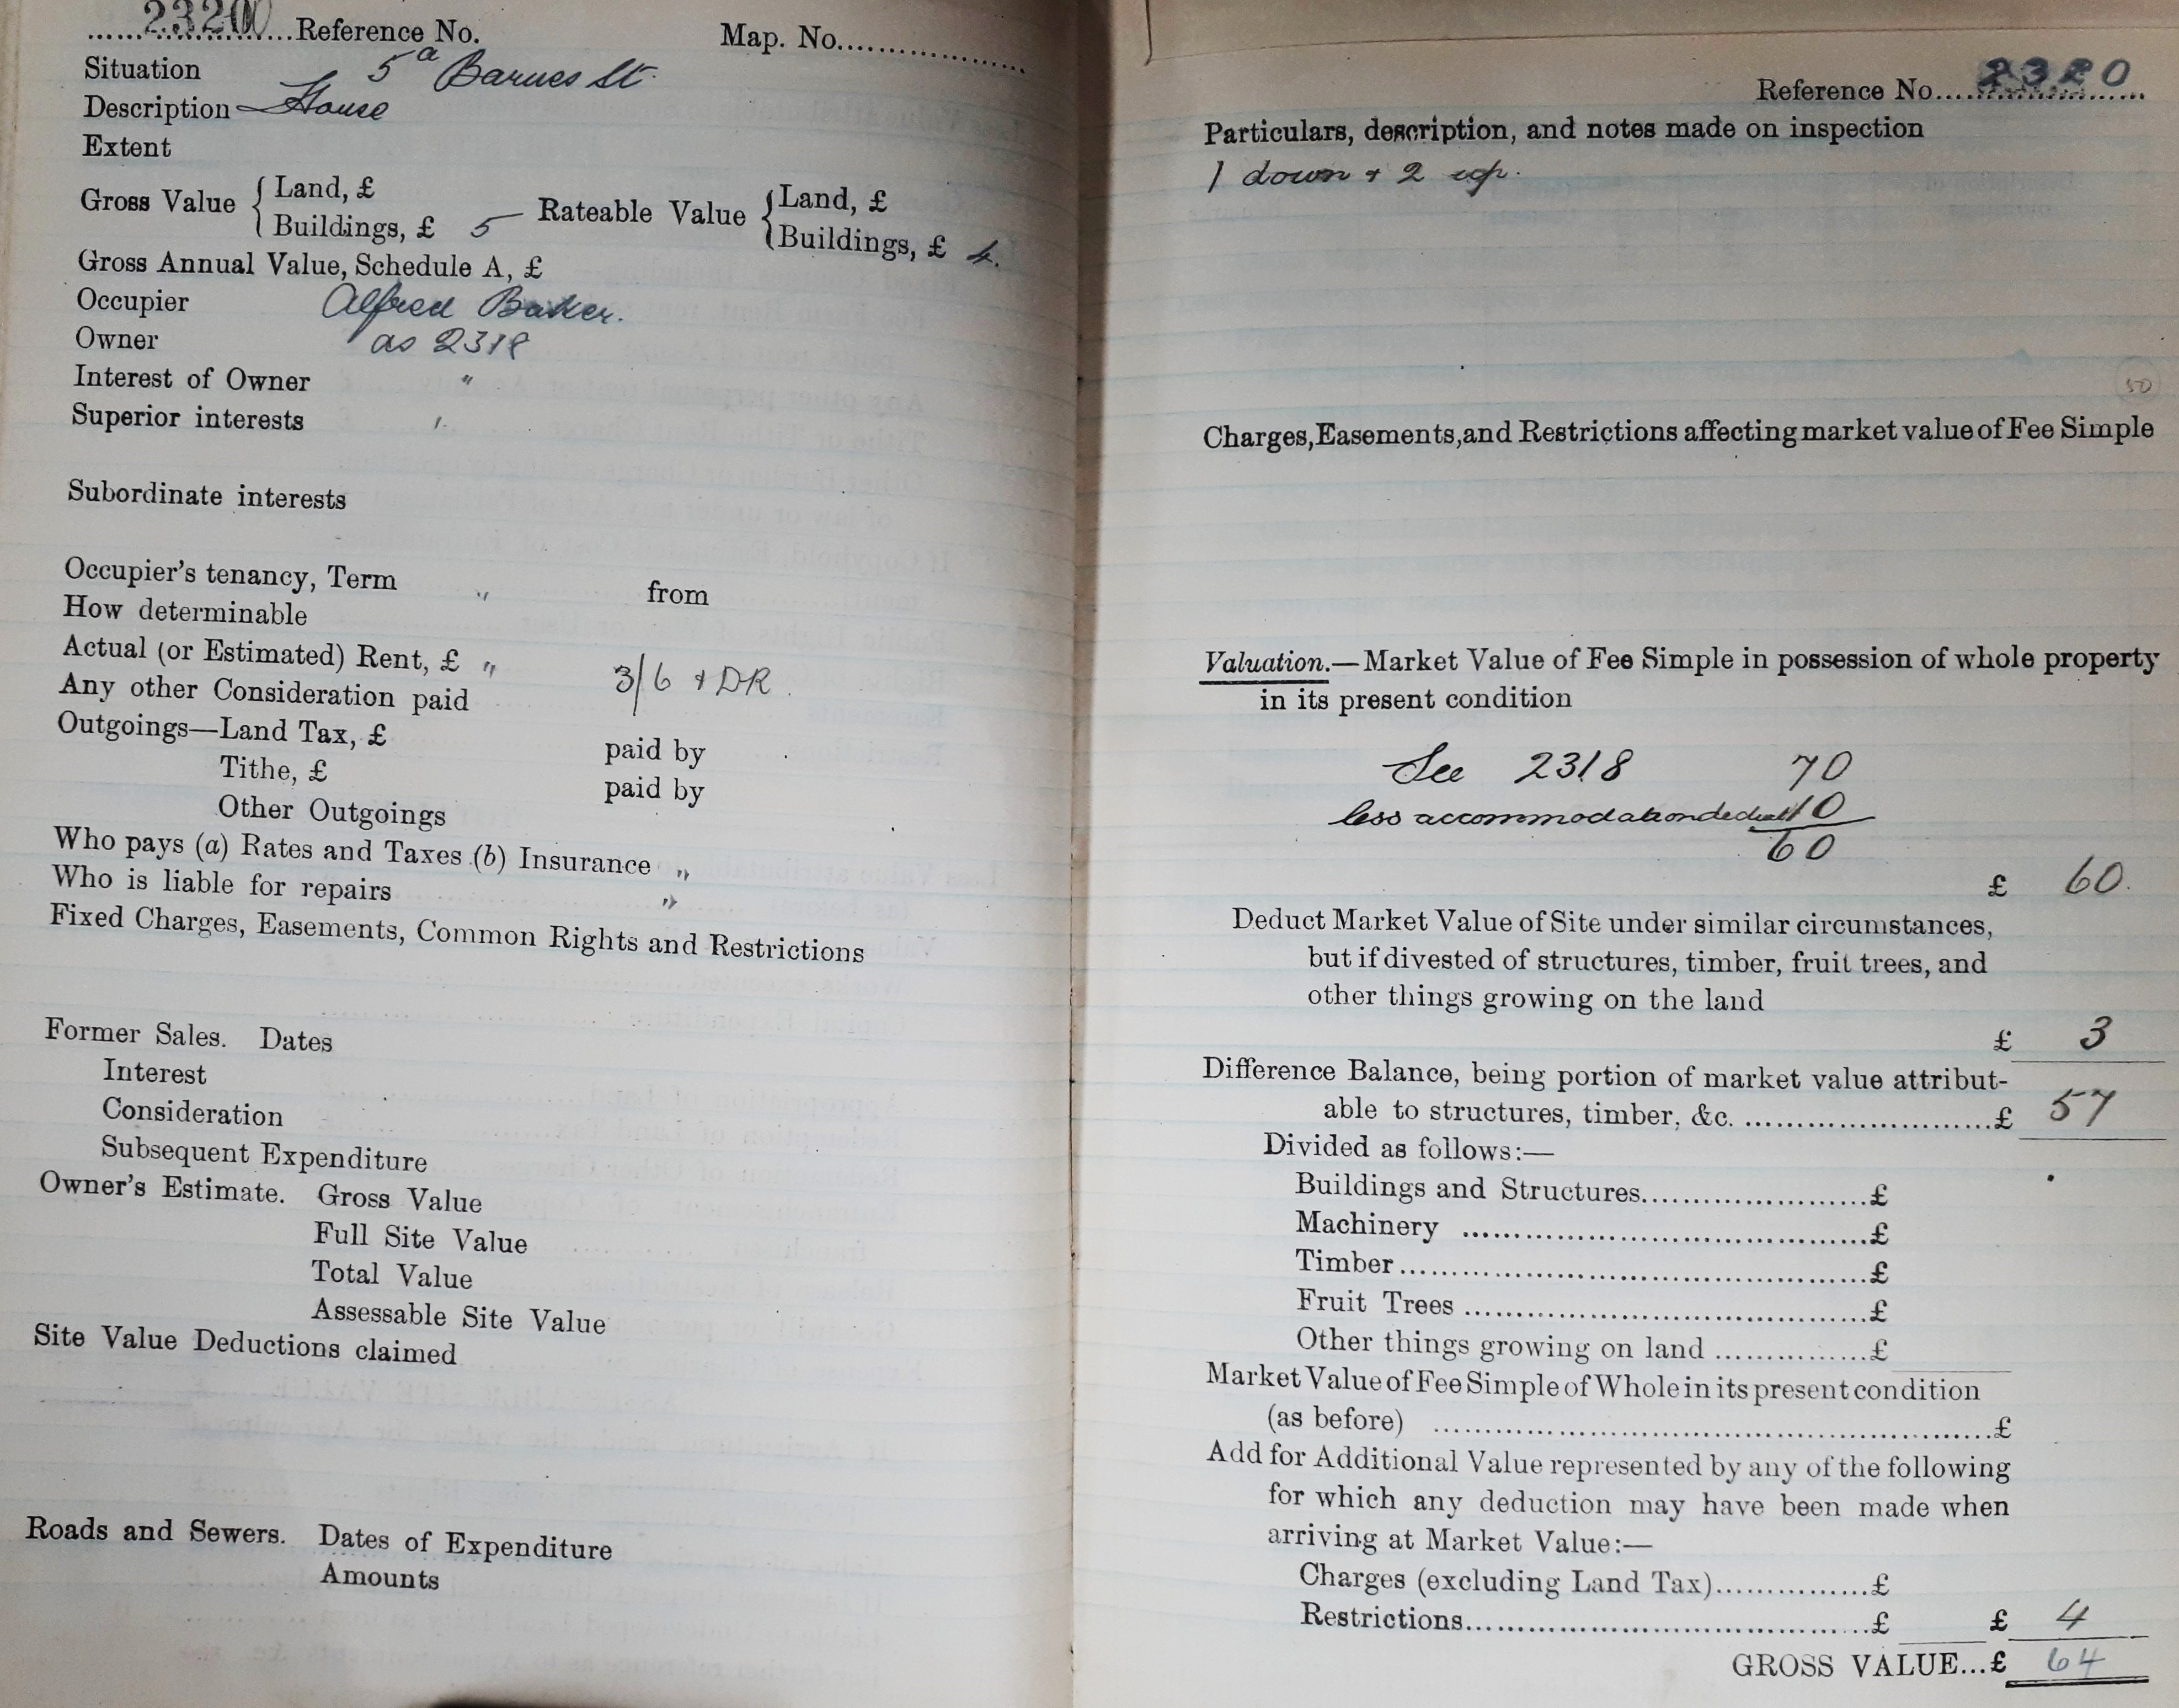 2320 Reference No. Map. No.
Situation 5a Barnes St.
Description House
Extent
Gross Value { Land, £
Buildings, £ 5 Rateable Value { Land, £
Buildings, £ 4.
Gross Annual Value, Schedule A, £
Occupier Alfred Baker.
Owner as 2318
Interest of Owner "
Superior interests "
Subordinate interests
Occupier's tenancy, Term " from
How determinable
Actual (or Estimated) Rent, £ " 3/6 + DR.
Any other Consideration paid
Outgoings—Land Tax, £ paid by
Tithe, £ paid by
Other Outgoings
Who pays (a) Rates and Taxes (b) Insurance "
Who is liable for repairs "
Fixed Charges, Easements, Common Rights and Restrictions
Former Sales. Dates
Interest
Consideration
Subsequent Expenditure
Owner's Estimate. Gross Value
Full Site Value
Total Value
Assessable Site Value
Site Value Deductions claimed
Roads and Sewers. Dates of Expenditure
Amounts
Reference No. 2320
Particulars, description, and notes made on inspection
1 down + 2 up.
50
Charges, Easements, and Restrictions affecting market value of Fee Simple
Valuation.—Market Value of Fee Simple in possession of whole property
in its present condition
See 2318 70
less accommodation deduct 10
60
£ 60.
Deduct Market Value of Site under similar circumstances,
but if divested of structures, timber, fruit trees, and
other things growing on the land
£ 3
Difference Balance, being portion of market value attribut-
able to structures, timber, &c. £ 57
Divided as follows:—
Buildings and Structures £
Machinery £
Timber £
Fruit Trees £
Other things growing on land £
Market Value of Fee Simple of Whole in its present condition
(as before) £
Add for Additional Value represented by any of the following
for which any deduction may have been made when
arriving at Market Value:—
Charges (excluding Land Tax) £
Restrictions £ £ 4
GROSS VALUE...£ 64